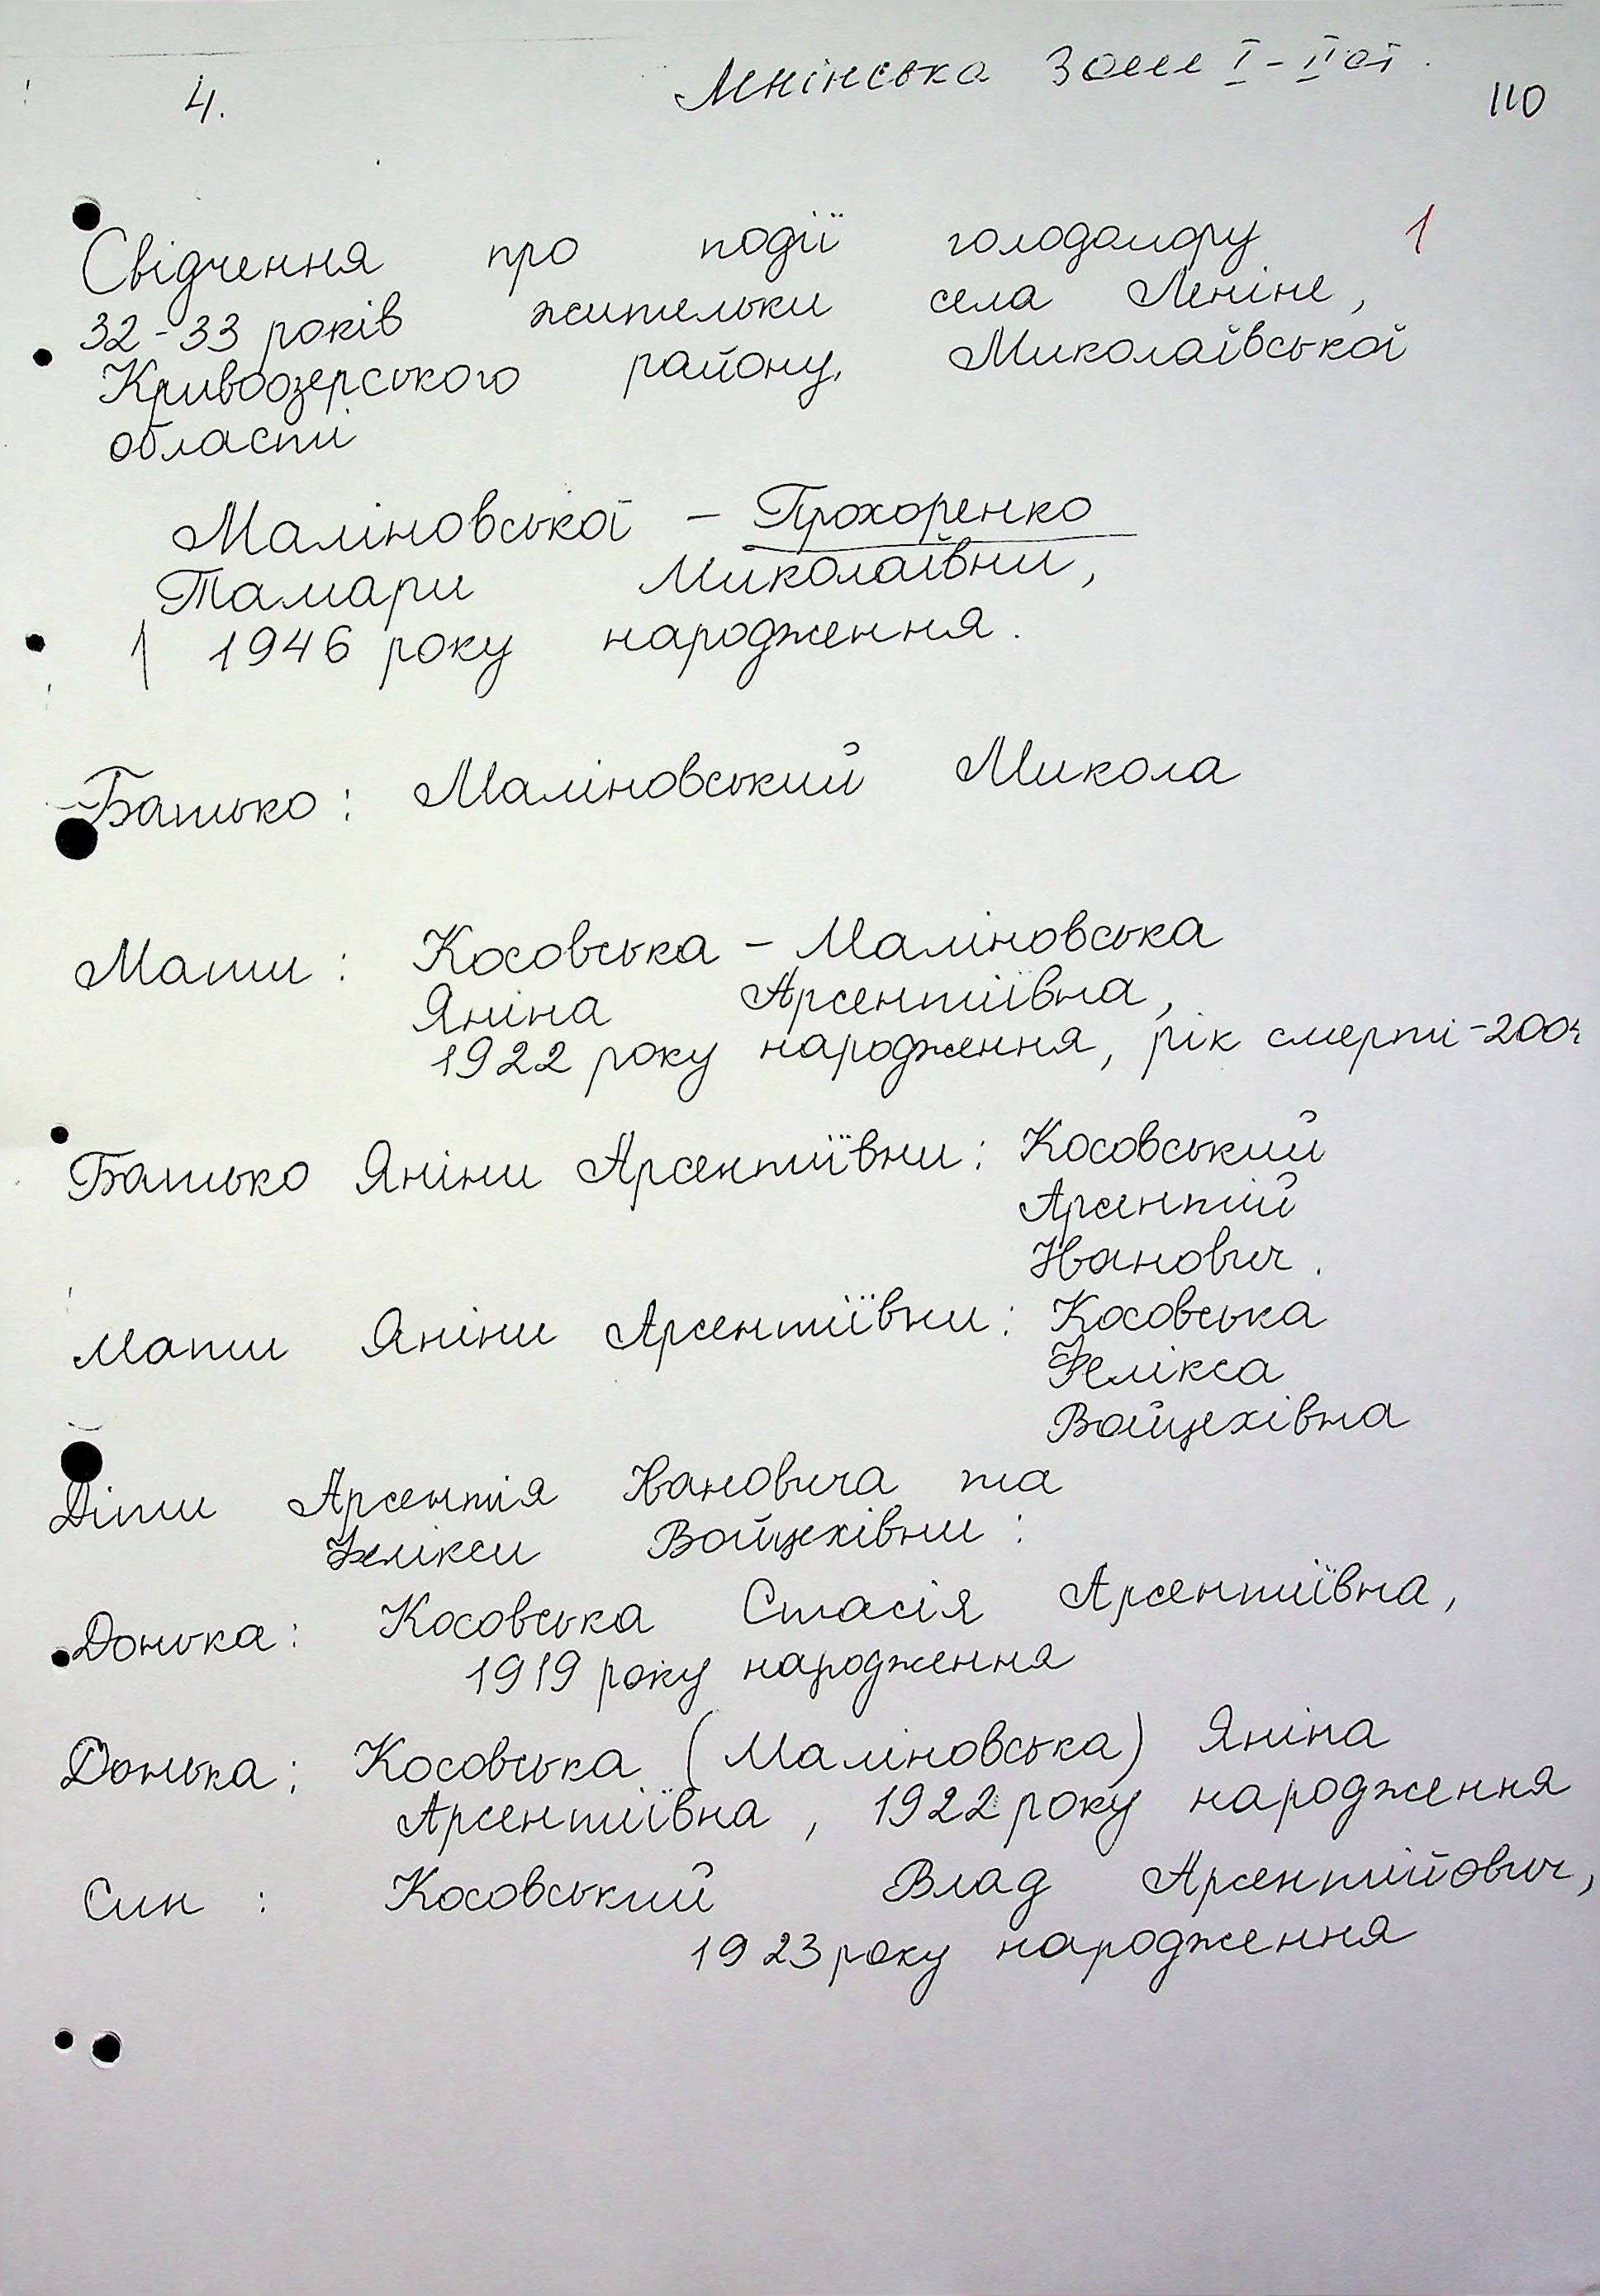 4.
Ленінська ЗОШ І-ІІ ст.
110
Свідчення про події голодомору 1
32-33 років жительки села Леніне,
Кривоозерського району, Миколаївської
області
Маліновської - Прохоренко
Тамари Миколаївни,
1946 року народження.
Батько: Маліновський Микола
Мати: Косовська - Маліновська
Яніна Арсентіївна,
1922 року народження, рік смерті - 2004
Батько Яніни Арсентіївни: Косовський
Арсентій
Іванович.
Мати Яніни Арсентіївни: Косовська
Фелікса
Войцехівна
Діти Арсентія Івановича та
Фелікси Войцехівни:
Донька: Косовська Стасія Арсентіївна,
1919 року народження
Донька: Косовська (Маліновська) Яніна
Арсентіївна, 1922 року народження
Син: Косовський Влад Арсентійович,
1923 року народження